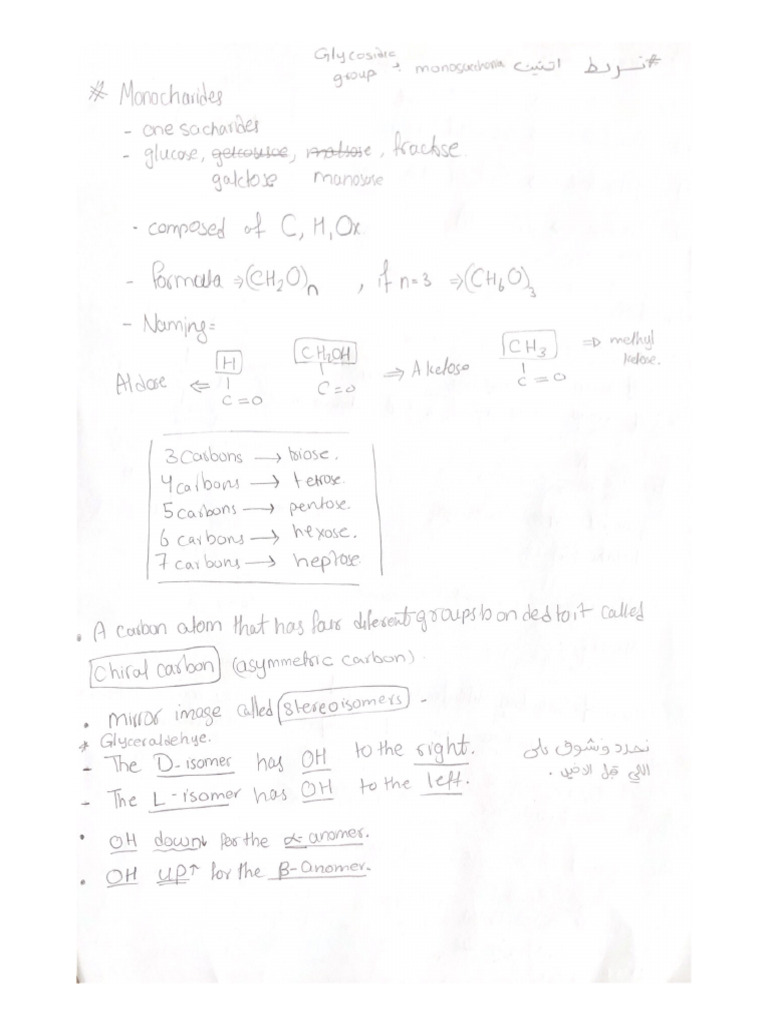 Glycosidic
group
* نربط اتنين monosaccharia
# Monocharides
- one sacharides
- glucose, , maltose, fractse.
galctose manosose
- composed of C, H, Ox
- formala ⇒ (CH₂O)n , if n=3 ⇒ (CH₆O)₃
- Naming=
H CH₂OH CH₃ ⇒ methyl
Aldose ⇐ C=O C=O ⇒ A ketose C=O ketose.
3 Carbons → triose.
4 carbons → tetrose.
5 carbons → pentose.
6 carbons → hexose.
7 carbons → heptose.
• A carbon atom that has four diferent groups bonded to it called
Chiral carbon (asymmetric carbon).
• Mirror image called stereoisomers -
* Glyceraldehye.
- The D-isomer has OH to the right.
- The L-isomer has OH to the left.
نحدد ونشوف على
اللي قبل الاخير .
• OH down↓ for the α-anomer.
• OH up↑ for the β-anomer.